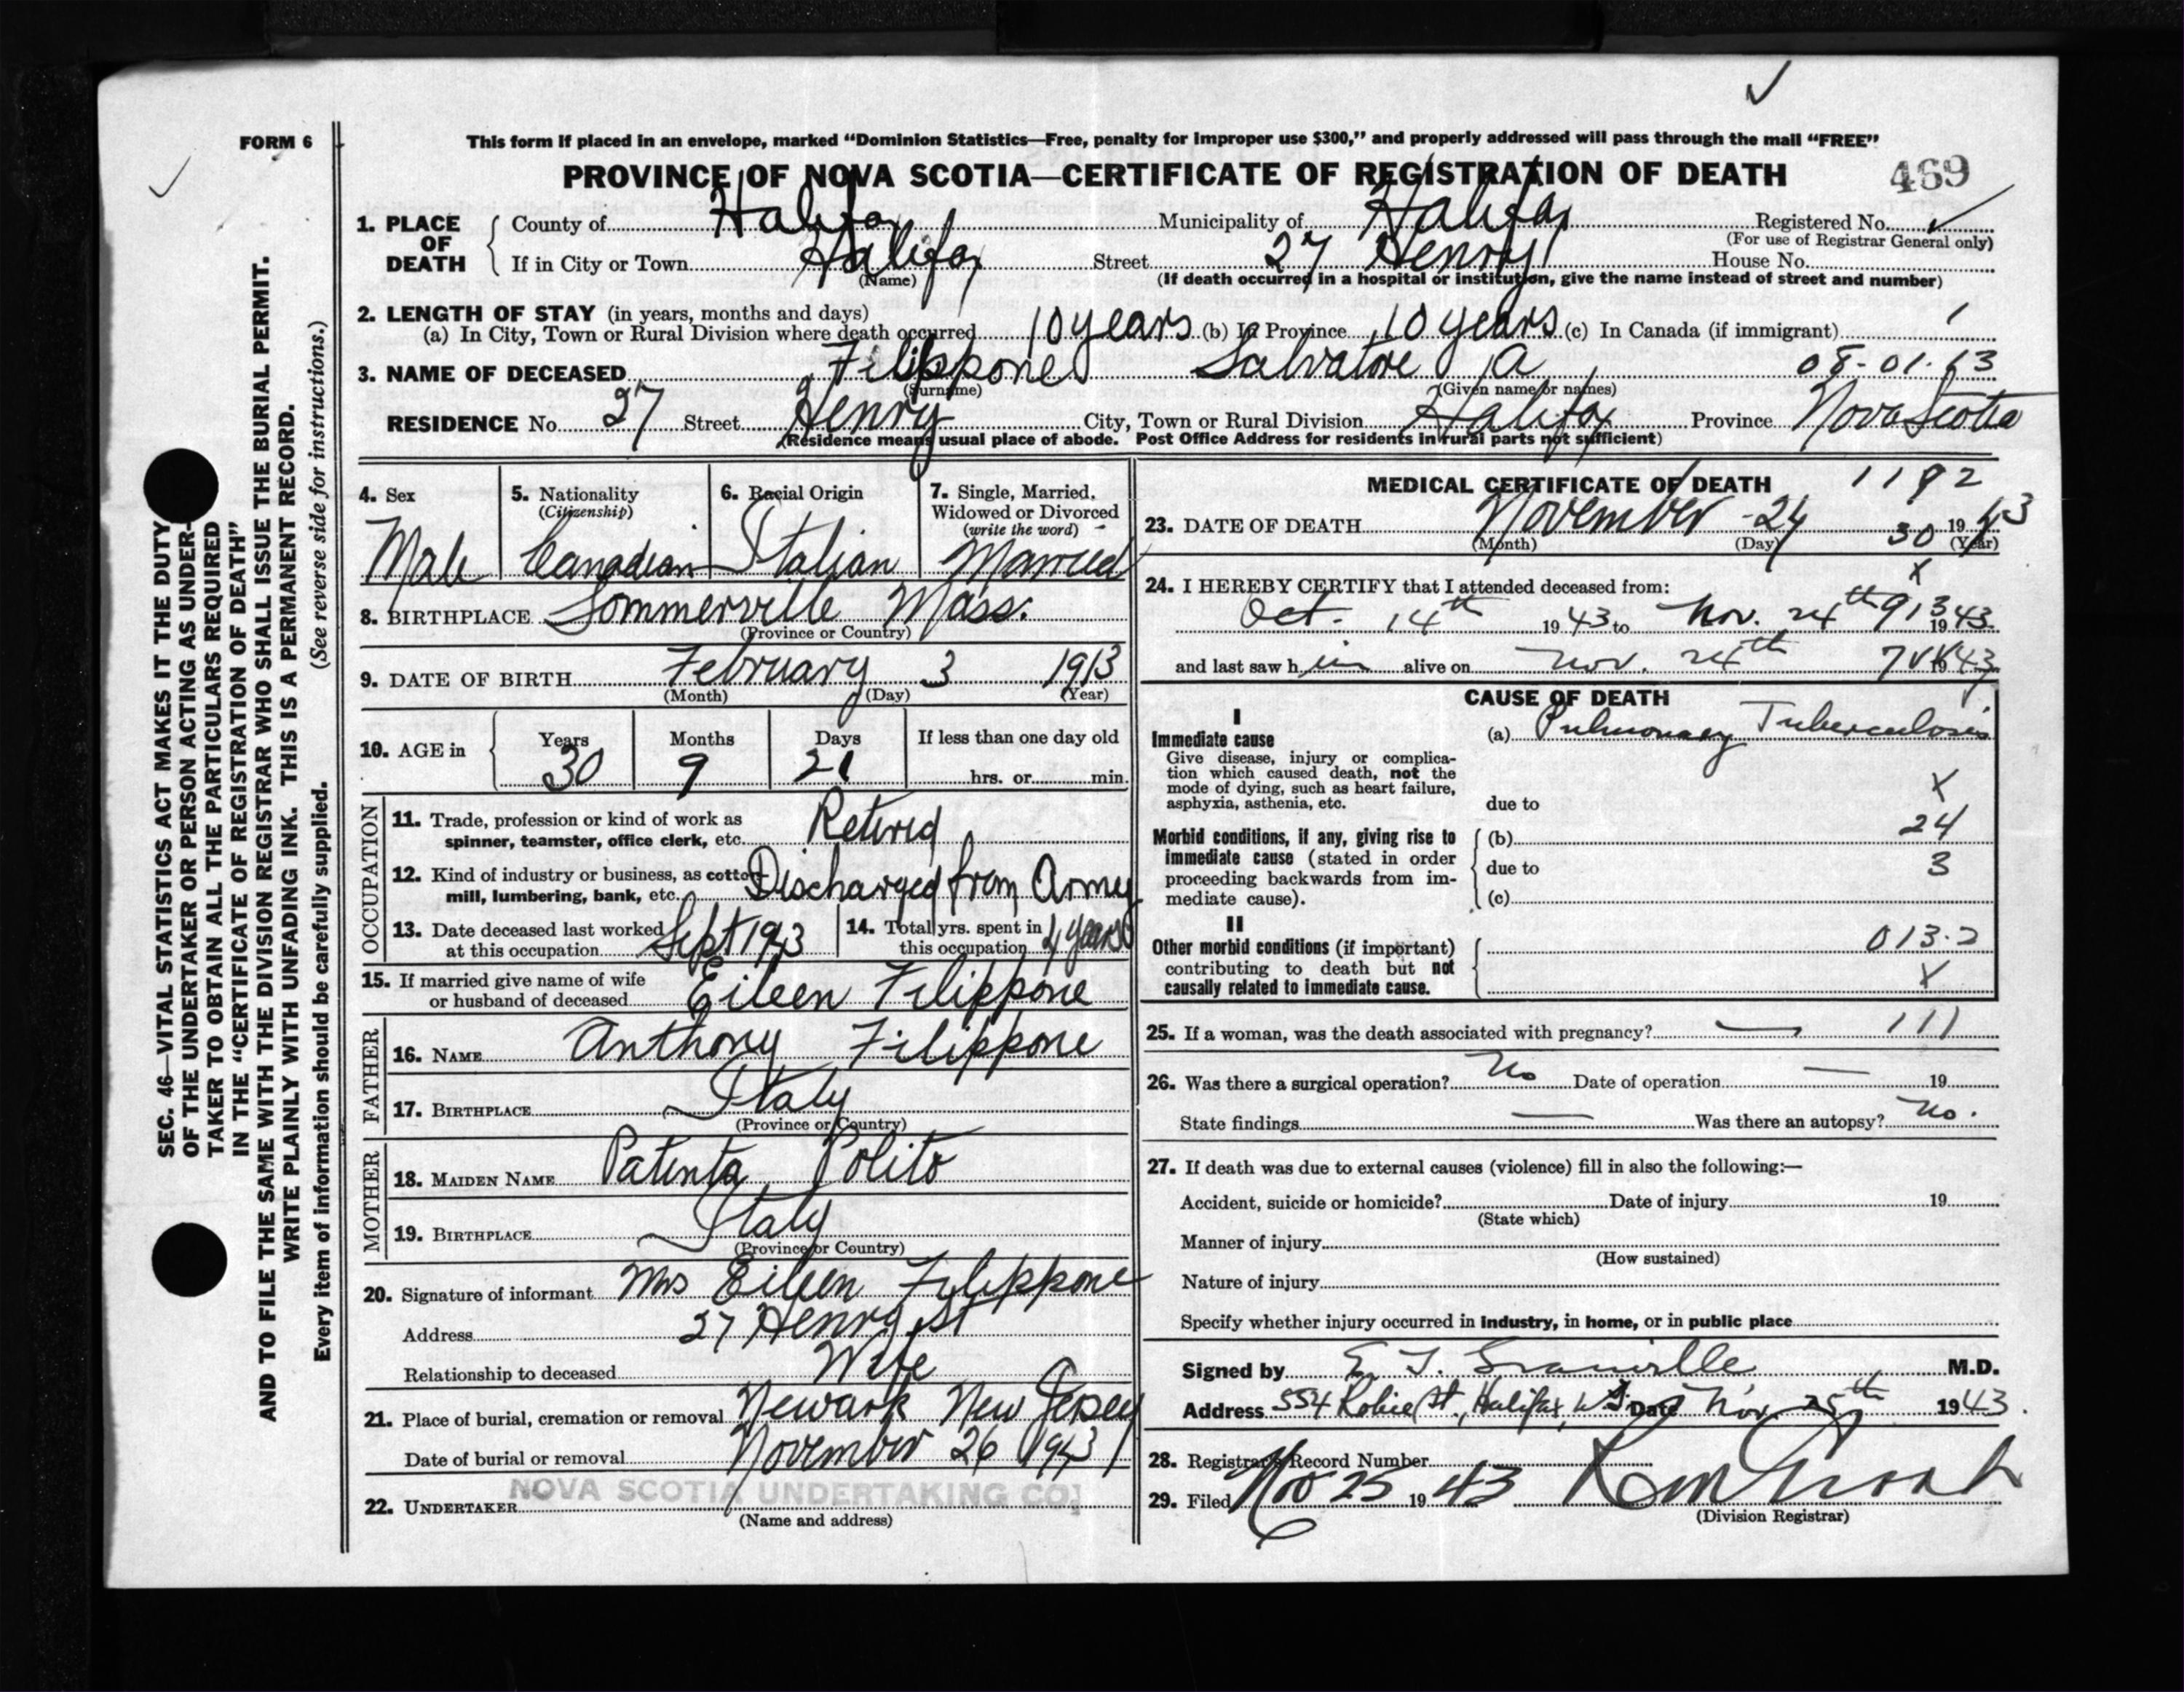 FORM 6
This form if placed in an envelope, marked “Dominion Statistics—Free, penalty for improper use $300,” and properly addressed will pass through the mail “FREE”
PROVINCE OF NOVA SCOTIA—CERTIFICATE OF REGISTRATION OF DEATH
469
1. PLACE OF DEATH
County of Halifax Municipality of Halifax Registered No.
(For use of Registrar General only)
If in City or Town Halifax Street 27 Henry House No.
(Name) (If death occurred in a hospital or institution, give the name instead of street and number)
2. LENGTH OF STAY (in years, months and days)
(a) In City, Town or Rural Division where death occurred 10 years (b) In Province 10 years (c) In Canada (if immigrant)
3. NAME OF DECEASED Filippone Salvatore A 08-01.63
(Surname) (Given name or names)
RESIDENCE No. 27 Street Henry City, Town or Rural Division Halifax Province Nova Scotia
(Residence means usual place of abode. Post Office Address for residents in rural parts not sufficient)
4. Sex
Male
5. Nationality
(Citizenship)
Canadian
6. Racial Origin
Italian
7. Single, Married, Widowed or Divorced
(write the word)
Married
8. BIRTHPLACE Sommerville Mass.
(Province or Country)
9. DATE OF BIRTH February 3 1913
(Month) (Day) (Year)
10. AGE in
Years Months Days If less than one day old
30 9 21 hrs. or min.
OCCUPATION
11. Trade, profession or kind of work as
spinner, teamster, office clerk, etc. Retired
12. Kind of industry or business, as cotton
mill, lumbering, bank, etc. Discharged from Army
13. Date deceased last worked
at this occupation Sept 1943
14. Total yrs. spent in
this occupation 4 years
15. If married give name of wife
or husband of deceased Eileen Filippone
FATHER
16. NAME Anthony Filippone
17. BIRTHPLACE Italy
(Province or Country)
MOTHER
18. MAIDEN NAME Patenta Polito
19. BIRTHPLACE Italy
(Province or Country)
20. Signature of informant Mrs Eileen Filippone
Address 27 Henry St
Relationship to deceased Wife
21. Place of burial, cremation or removal Newark New Jersey
Date of burial or removal November 26 1943
22. UNDERTAKER NOVA SCOTIA UNDERTAKING CO.
(Name and address)
MEDICAL CERTIFICATE OF DEATH 1192
23. DATE OF DEATH November - 24 30 19 43
(Month) (Day) (Year)
24. I HEREBY CERTIFY that I attended deceased from:
X
Oct. 14th 19 43 to Nov. 24th 913 19 43
and last saw h im alive on Nov. 24th 19 43
CAUSE OF DEATH
I
Immediate cause
Give disease, injury or complica-
tion which caused death, not the
mode of dying, such as heart failure,
asphyxia, asthenia, etc.
(a) Pulmonary Tuberculosis
X
due to
Morbid conditions, if any, giving rise to
immediate cause (stated in order
proceeding backwards from im-
mediate cause).
(b) 24
due to 3
(c)
II
Other morbid conditions (if important)
contributing to death but not
causally related to immediate cause.
013.2
X
25. If a woman, was the death associated with pregnancy? — 111
26. Was there a surgical operation? No Date of operation — 19
State findings — Was there an autopsy? No.
27. If death was due to external causes (violence) fill in also the following:—
Accident, suicide or homicide? Date of injury 19
(State which)
Manner of injury
(How sustained)
Nature of injury
Specify whether injury occurred in industry, in home, or in public place
Signed by E. T. Granville M.D.
Address 554 Robie St., Halifax, N.S. Date Nov. 25th 1943.
28. Registrar's Record Number
29. Filed Nov 25 19 43
(Division Registrar)
SEC. 46—VITAL STATISTICS ACT MAKES IT THE DUTY
OF THE UNDERTAKER OR PERSON ACTING AS UNDER-
TAKER TO OBTAIN ALL THE PARTICULARS REQUIRED
IN THE “CERTIFICATE OF REGISTRATION OF DEATH”
AND TO FILE THE SAME WITH THE DIVISION REGISTRAR WHO SHALL ISSUE THE BURIAL PERMIT.
WRITE PLAINLY WITH UNFADING INK. THIS IS A PERMANENT RECORD.
Every item of information should be carefully supplied. (See reverse side for instructions.)